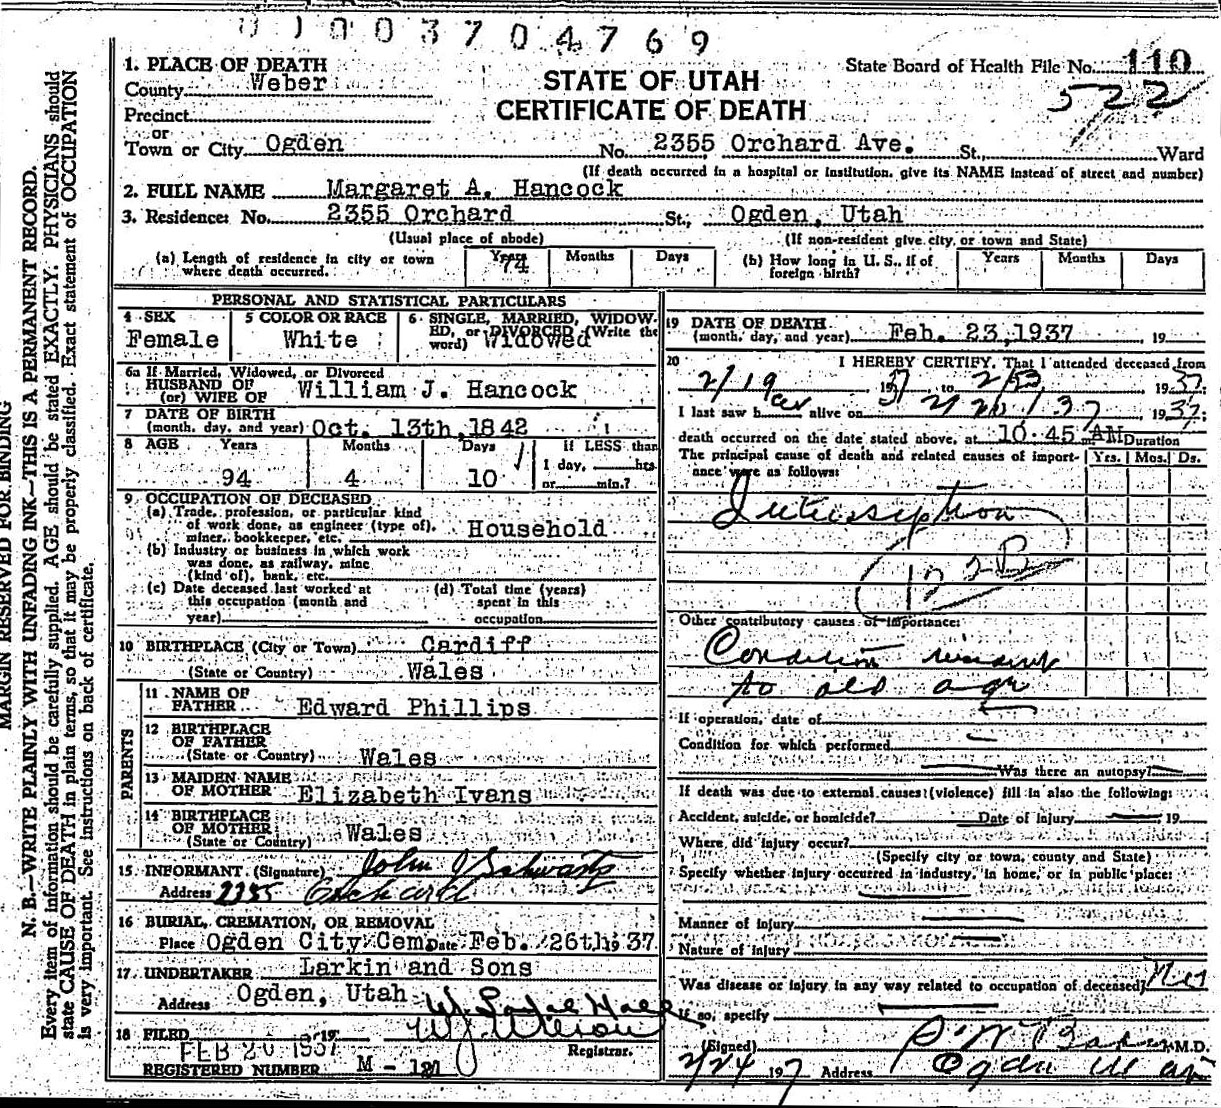 0 1 0 0 3 7 0 4 7 6 9
1. PLACE OF DEATH
County Weber
Precinct
or
Town or City Ogden
STATE OF UTAH
CERTIFICATE OF DEATH
State Board of Health File No. 110
522
No. 2355 Orchard Ave. St., Ward
(If death occurred in a hospital or institution, give its NAME instead of street and number)
2. FULL NAME Margaret A. Hancock
3. Residence: No. 2355 Orchard St., Ogden, Utah
(Usual place of abode) (If non-resident give city, or town and State)
(a) Length of residence in city or town where death occurred. Years 74 Months Days
(b) How long in U. S., if of foreign birth? Years Months Days
PERSONAL AND STATISTICAL PARTICULARS
4 SEX Female
5 COLOR OR RACE White
6 SINGLE, MARRIED, WIDOW-
ED, or DIVORCED (Write the
word) Widowed
6a If Married, Widowed, or Divorced
HUSBAND OF
(or) WIFE OF William J. Hancock
7 DATE OF BIRTH
(month, day, and year) Oct. 13th, 1842
8 AGE Years 94 Months 4 Days 10
If LESS than
1 day, hrs.
or min.?
9 OCCUPATION OF DECEASED
(a) Trade, profession, or particular kind
of work done, as engineer (type of),
miner, bookkeeper, etc. Household
(b) Industry or business in which work
was done, as railway, mine
(kind of), bank, etc.
(c) Date deceased last worked at
this occupation (month and
year)
(d) Total time (years)
spent in this
occupation
10 BIRTHPLACE (City or Town) Cardiff
(State or Country) Wales
PARENTS
11 NAME OF
FATHER Edward Phillips
12 BIRTHPLACE
OF FATHER
(State or Country) Wales
13 MAIDEN NAME
OF MOTHER Elizabeth Ivans
14 BIRTHPLACE
OF MOTHER
(State or Country) Wales
15 INFORMANT (Signature) John J Schwartz
Address 2355 Orchard
16 BURIAL, CREMATION, OR REMOVAL
Place Ogden City Cem. Date Feb. 26th 1937
17 UNDERTAKER Larkin and Sons
Address Ogden, Utah
18 FILED 19
FEB 26 1937
Registrar.
REGISTERED NUMBER M - 121
19 DATE OF DEATH
(month, day, and year) Feb. 23, 1937, 19
20 I HEREBY CERTIFY, That I attended deceased from
2/19 1937, to 2/23 1937
I last saw her alive on 1937
death occurred on the date stated above, at 10:45 m AM
Duration
The principal cause of death and related causes of import-
ance were as follows:
Yrs. Mos. Ds.
122B
Other contributory causes of importance:
Condition incident
to old age
If operation, date of
Condition for which performed
Was there an autopsy?
If death was due to external causes (violence) fill in also the following:
Accident, suicide, or homicide? Date of injury 19
Where did injury occur?
(Specify city or town, county and State)
Specify whether injury occurred in industry, in home, or in public place:
Manner of injury
Nature of injury
Was disease or injury in any way related to occupation of deceased?
If so, specify
(Signed) M.D.
2/24 1937 Address Ogden Utah
MARGIN RESERVED FOR BINDING
N. B.—WRITE PLAINLY WITH UNFADING INK—THIS IS A PERMANENT RECORD.
Every item of information should be carefully supplied. AGE should be stated EXACTLY. PHYSICIANS should
state CAUSE OF DEATH in plain terms, so that it may be properly classified. Exact statement of OCCUPATION
is very important. See instructions on back of certificate.